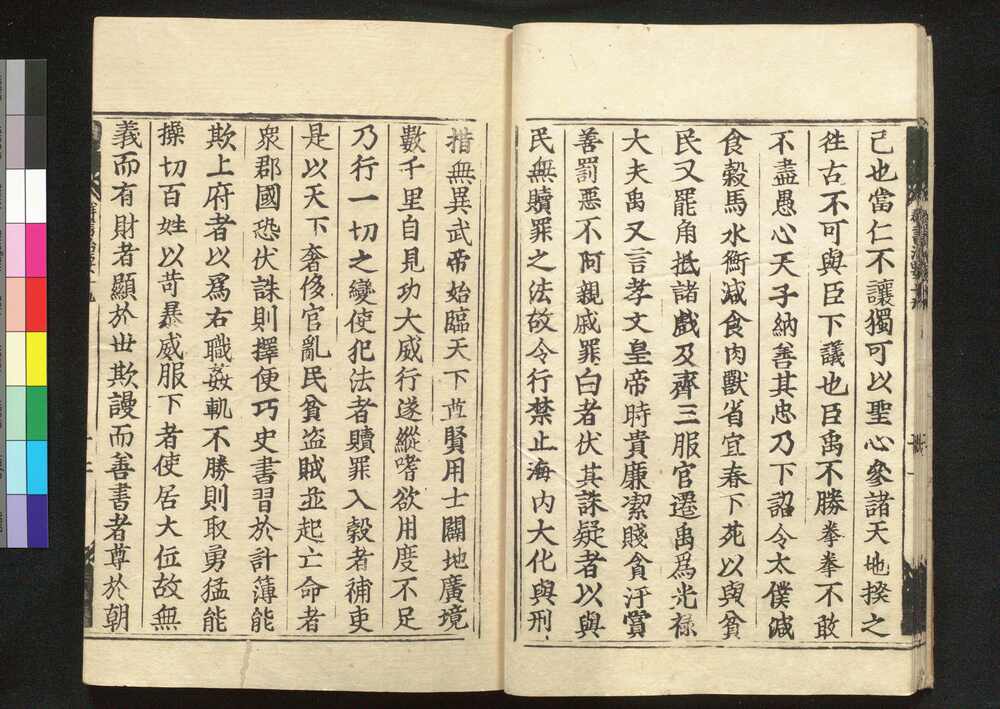 己也當仁不讓獨可以聖心參諸天地揆之
徃古不可與臣下議也臣禹不勝拳拳不敢
不盡愚心天子納善其忠乃下詔令太僕減
食穀馬水衡減食肉獸省宜春下苑以與貧
民又罷角抵諸戲及齊三服官遷禹爲光祿
大夫禹又言孝文皇帝時貴廉潔賤貪汙賞
善罰惡不阿親戚罪白者伏其誅疑者以與
民無贖罪之法故令行禁止海內大化與刑
措無異武帝始臨天下尊賢用士闢地廣境
數千里自見功大威行遂縱嗜欲用度不足
乃行一切之變使犯法者贖罪入穀者補吏
是以天下奢侈官亂民貧盜賊並起亡命者
衆郡國恐伏誅則擇便巧史書習於計薄能
欺上府者以爲右職姦軌不勝則取勇猛能
操切百姓以苛暴威服下者使居大位故無
義而有財者顯於世欺謾而善書者尊於朝